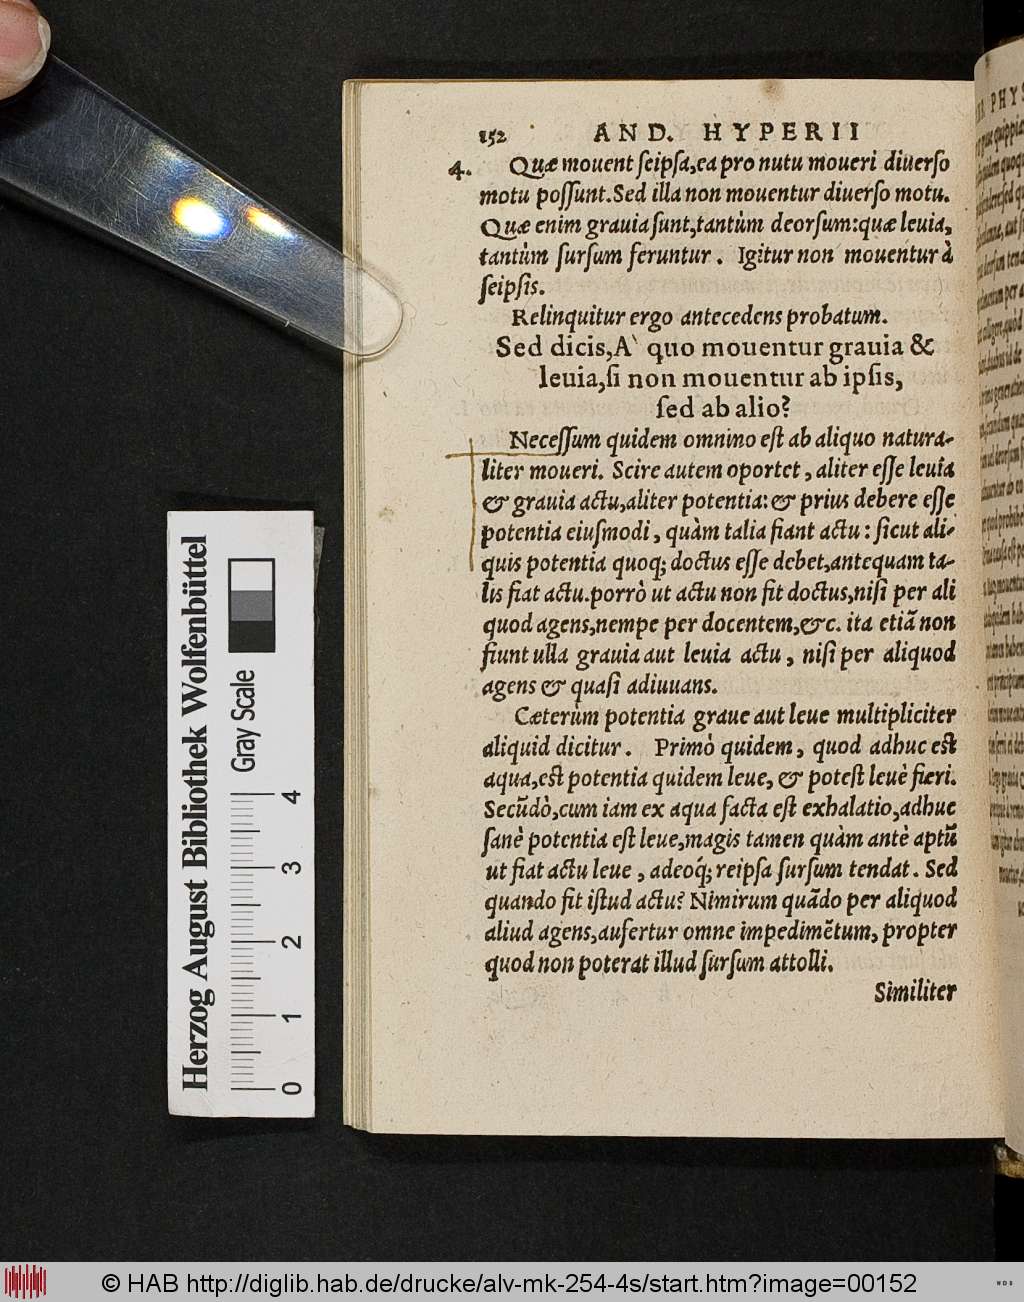 152 AND. HYPERII
4. Quæ mouent ſeipſa,ea pro nutu moueri diuerſo
motu poſſunt.Sed illa non mouentur diuerſo motu.
Quæ enim grauia ſunt,tantùm deorſum:quæ leuia,
tantùm ſurſum feruntur. Igitur non mouentur à
ſeipſis.
Relinquitur ergo antecedens probatum.
Sed dicis,A` quo mouentur grauia &
leuia,ſi non mouentur ab ipſis,
ſed ab alio?
Neceſſum quidem omnino eſt ab aliquo natura-
liter moueri. Scire autem oportet, aliter eſſe leuia
& grauia actu,aliter potentia: & prius debere eſſe
potentia eiuſmodi, quàm talia fiant actu: ſicut ali-
quis potentia quoq; doctus eſſe debet,antequam ta-
lis fiat actu.porrò ut actu non fit doctus,niſi per ali
quod agens,nempe per docentem,&c. ita etiã non
fiunt ulla grauia aut leuia actu, niſi per aliquod
agens & quaſi adiuuans.
Cæterùm potentia graue aut leue multipliciter
aliquid dicitur. Primò quidem, quod adhuc eſt
aqua,eſt potentia quidem leue, & poteſt leuè fieri.
Secũdò,cum iam ex aqua facta eſt exhalatio,adhuc
ſanè potentia eſt leue,magis tamen quàm antè aptũ
ut fiat actu leue, adeoq́; reipſa ſurſum tendat. Sed
quando fit iſtud actu? Nimirum quãdo per aliquod
aliud agens,aufertur omne impedimẽtum, propter
quod non poterat illud ſurſum attolli.
Similiter
Herzog August Bibliothek Wolfenbüttel
Gray Scale
0 1 2 3 4
© HAB http://diglib.hab.de/drucke/alv-mk-254-4s/start.htm?image=00152